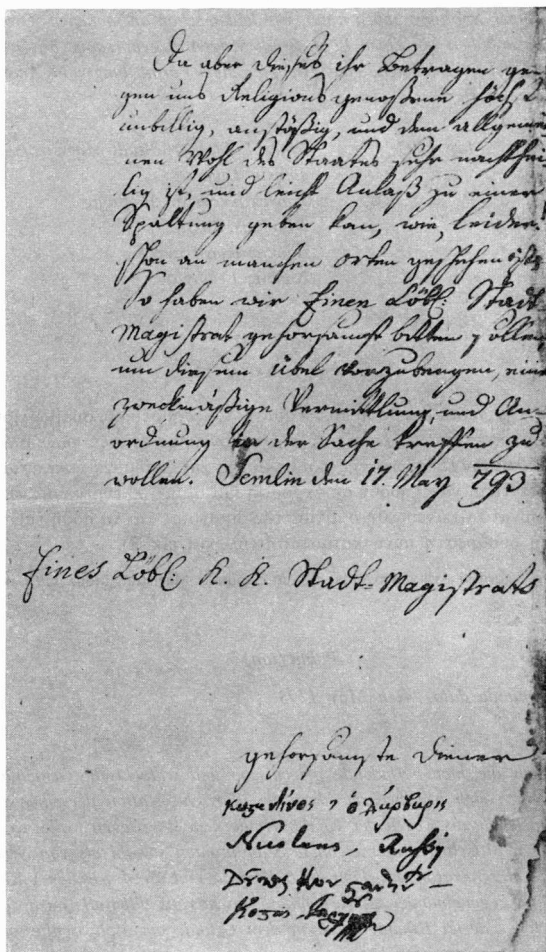 Da aber dieses ihr Betragen ge-
gen uns Religionsgenoßene höchst
unbillig, anstößig, und dem allgemei
nen Wohl des Staates sehr nachthei
lig ist, und leicht Anlaß zu einer
Spaltung geben kan, wie leider!
schon an manchen Orten geschehen ist:
So haben wir Einen Löbl: Stadt
Magistrat gehorsamst bitten sollen,
um diesem übel vorzubeugen, eine
zweckmäßige Vermittlung, und An-
ordnung in der Sache treffen zu
wollen. Semlin den 17. May 793
Eines Löbl: K. K. Stadt-Magistrats
gehorsamste Diener
Nicolaus